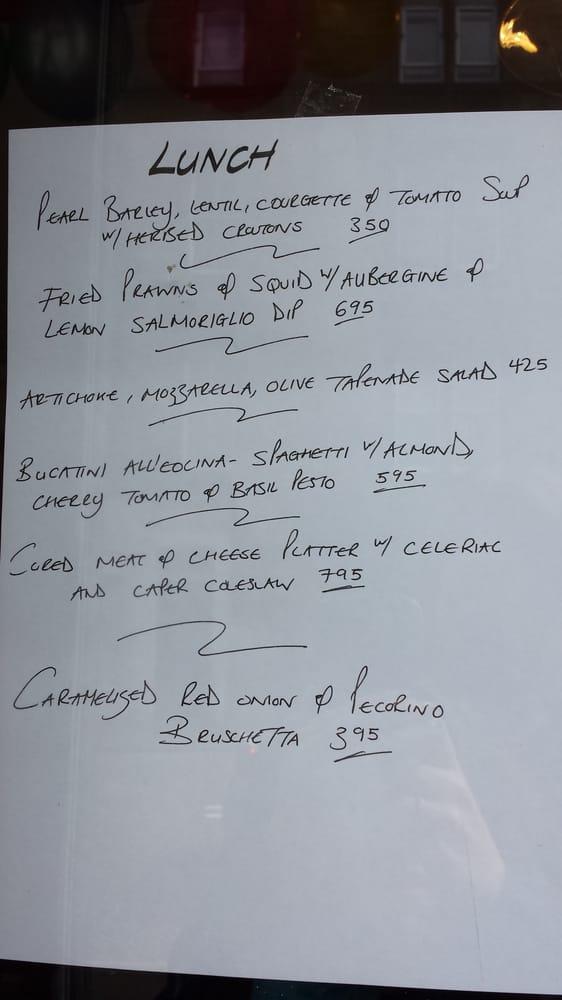 LUNCH
PEARL BARLEY, LENTIL, COURGETTE & TOMATO SOUP
W/ HERBED CROUTONS 350
FRIED PRAWNS & SQUID W/ AUBERGINE &
LEMON SALMORIGLIO DIP 695
ARTICHOKE, MOZZARELLA, OLIVE TAPENADE SALAD 425
BUCATINI ALL'EOLINA - SPAGHETTI W/ ALMOND,
CHERRY TOMATO & BASIL PESTO 595
CURED MEAT & CHEESE PLATTER W/ CELERIAC
AND CAPER COLESLAW 795
CARAMELISED RED ONION & PECORINO
BRUSCHETTA 395